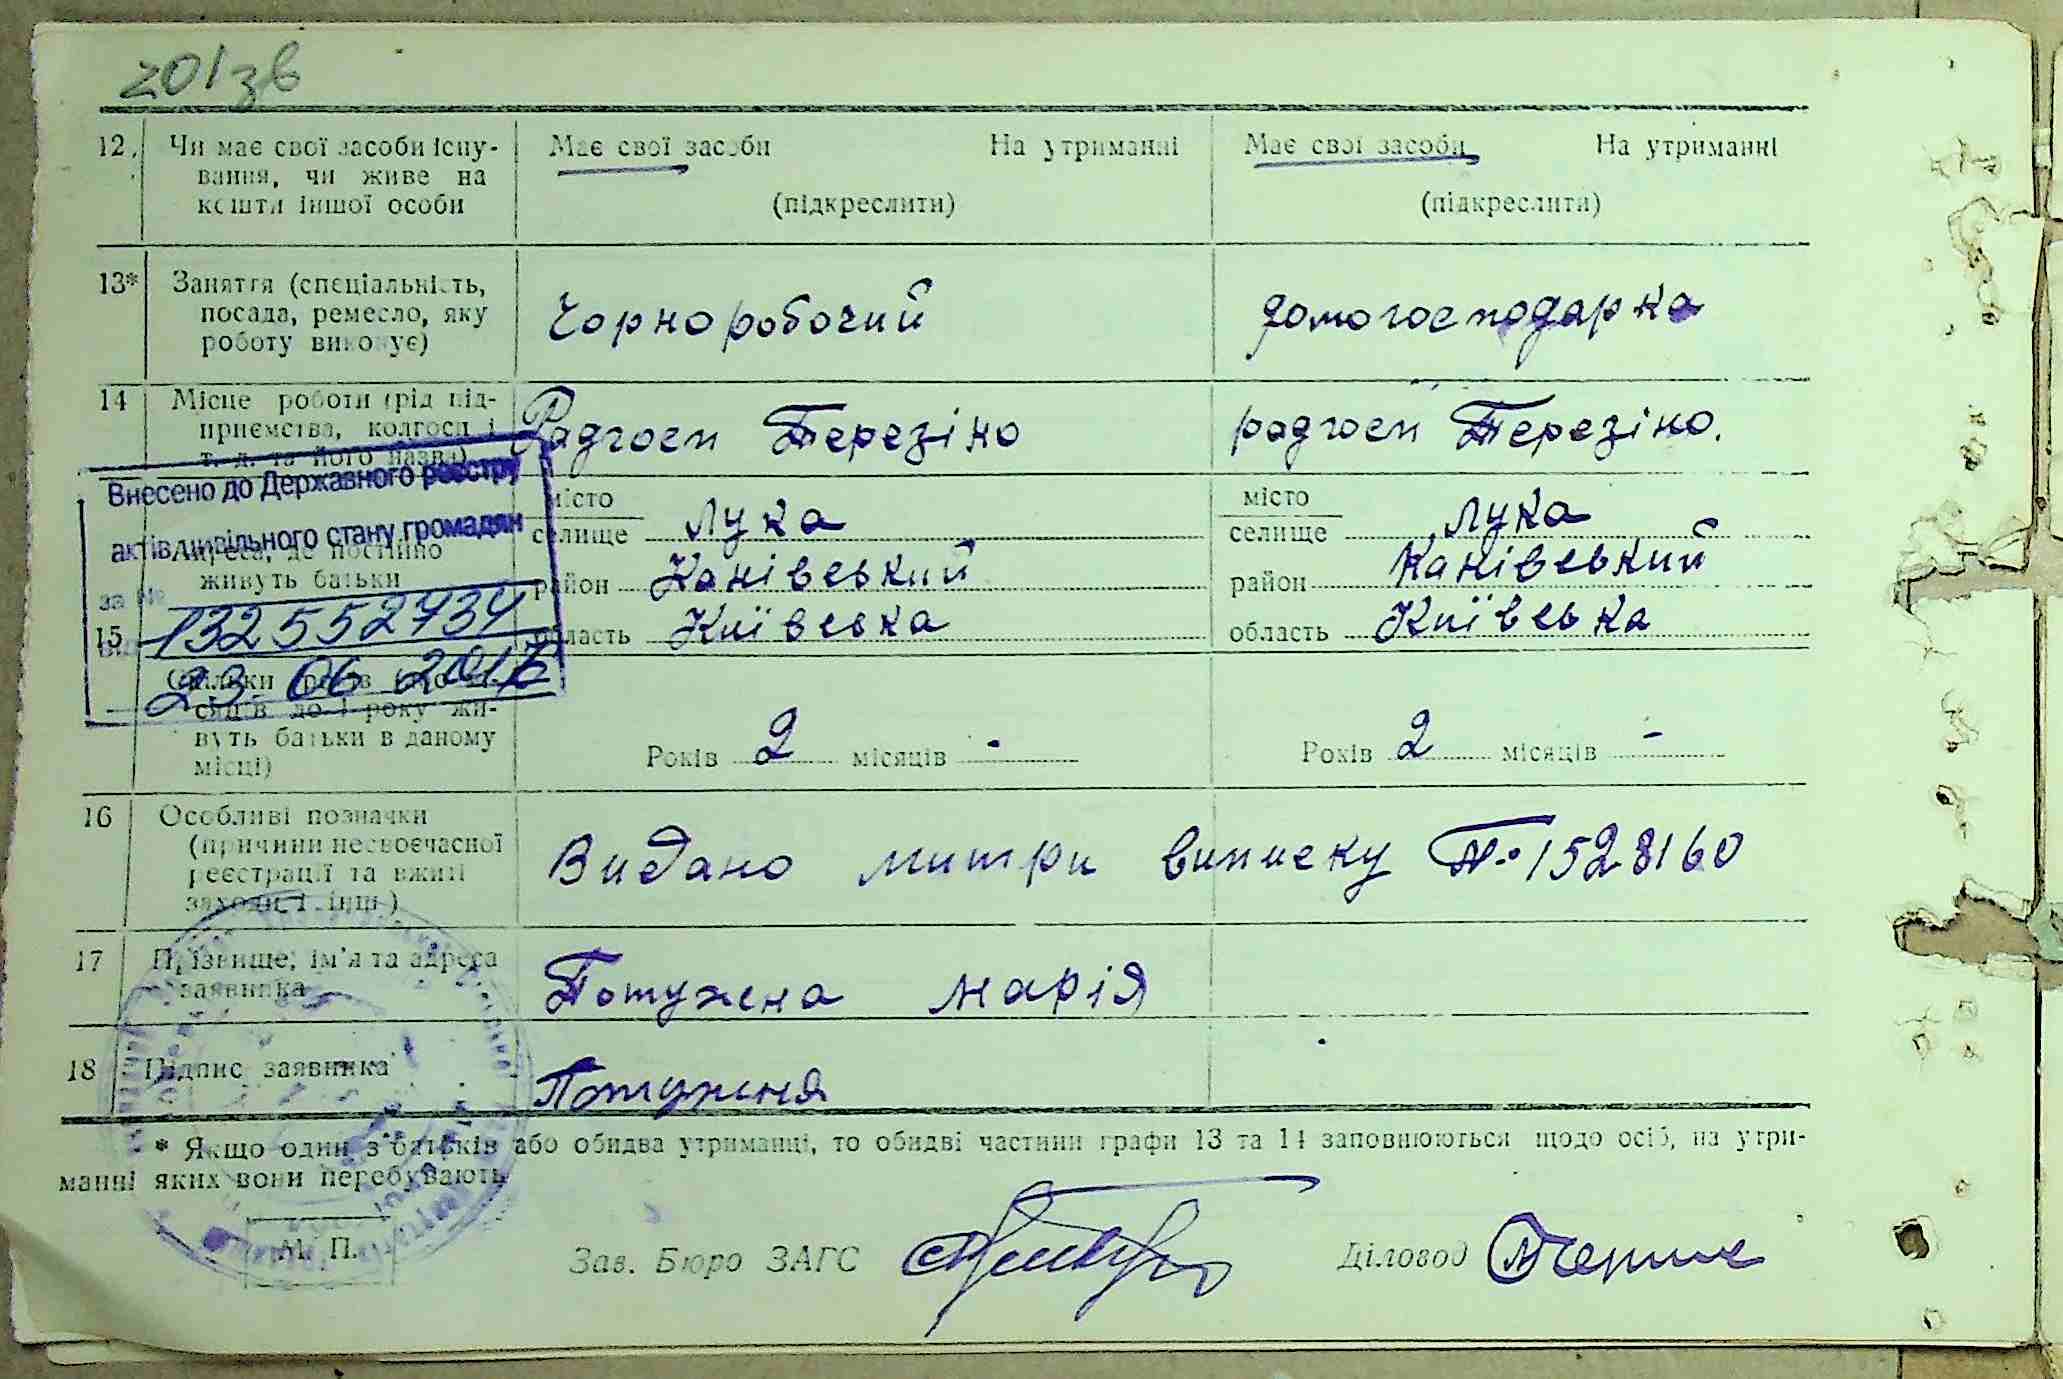 201зв
12. Чи має свої засоби існу- Має свої засоби На утриманні Має свої засоби На утриманні
вання, чи живе на
кошти іншої особи (підкреслити) (підкреслити)
13* Заняття (спеціальність,
посада, ремесло, яку Чорноробочий домогосподарка
роботу виконує)
14 Місце роботи (рід під-
приємства, колгосп і Радгосп Терезіно радгосп Терезіно.
т. д. та його назва)
Внесено до Державного реєстру
актів цивільного стану громадян
за №
132552734
23 06 2017
15 Адреса, де постійно
живуть батьки
місто місто
селище Лука селище Лука
район Канівський район Канівський
область Київська область Київська
Скільки років
сяців до 1 року жи-
вуть батьки в даному
місці) Років 2 місяців - Років 2 місяців -
16 Особливі позначки
(причини несвоєчасної
реєстрації та вжиті Видано митри виписку № 1528160
заходи, і. інш.)
17 Прізвище, ім'я та адреса
заявника Потужена Марія
18 Підпис заявника Потужня
* Якщо один з батьків або обидва утриманці, то обидві частини графи 13 та 14 заповнюються щодо осіб, на утри-
манні яких вони перебувають
М. П.
Зав. Бюро ЗАГС Діловод